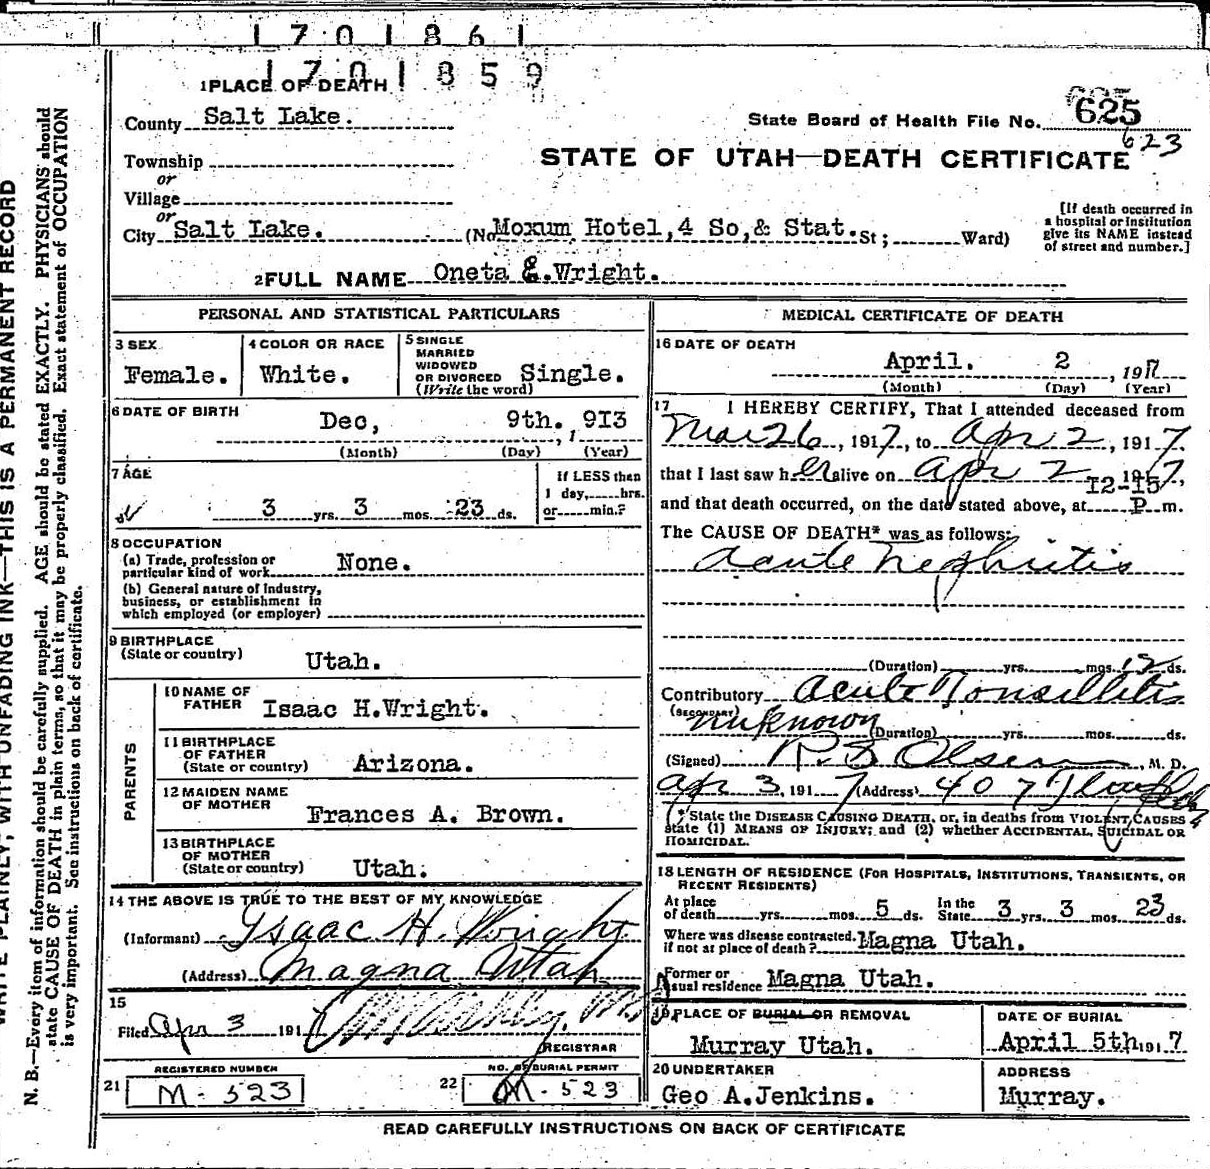 1701861
1701859
1 PLACE OF DEATH
County Salt Lake.
State Board of Health File No. 625
623
Township
or
Village
STATE OF UTAH—DEATH CERTIFICATE
or
City Salt Lake. (No. Moxum Hotel, 4 So, & Stat. St; Ward)
[If death occurred in a hospital or institution give its NAME instead of street and number.]
2 FULL NAME Oneta E. Wright.
PERSONAL AND STATISTICAL PARTICULARS
3 SEX
Female.
4 COLOR OR RACE
White.
5 SINGLE
MARRIED
WIDOWED
OR DIVORCED
(Write the word)
Single.
6 DATE OF BIRTH
Dec, 9th. , 1913
(Month) (Day) (Year)
7 AGE
3 yrs. 3 mos. 23 ds.
If LESS than
1 day, hrs.
or min.?
8 OCCUPATION
(a) Trade, profession or
particular kind of work None.
(b) General nature of Industry,
business, or establishment in
which employed (or employer)
9 BIRTHPLACE
(State or country) Utah.
PARENTS
10 NAME OF
FATHER Isaac H.Wright.
11 BIRTHPLACE
OF FATHER
(State or country) Arizona.
12 MAIDEN NAME
OF MOTHER Frances A. Brown.
13 BIRTHPLACE
OF MOTHER
(State or country) Utah.
14 THE ABOVE IS TRUE TO THE BEST OF MY KNOWLEDGE
(Informant) Isaac H. Wright
(Address) Magna Utah
15
Filed Apr 3 1917
REGISTRAR
REGISTERED NUMBER
21 M-523
NO. OF BURIAL PERMIT
22 M-523
MEDICAL CERTIFICATE OF DEATH
16 DATE OF DEATH
April. 2 , 1917
(Month) (Day) (Year)
17 I HEREBY CERTIFY, That I attended deceased from
Mar 26, 1917, to Apr 2, 1917.
that I last saw her alive on Apr 2 1917,
12-15
and that death occurred, on the date stated above, at P m.
The CAUSE OF DEATH* was as follows:
Acute Nephritis
(Duration) yrs. mos. 12 ds.
Contributory Acute Tonsillitis
(SECONDARY)
unknown (Duration) yrs. mos. ds.
(Signed) Olsen, M. D.
Apr 3, 1917 (Address) 407
*State the DISEASE CAUSING DEATH, or, in deaths from VIOLENT CAUSES
state (1) MEANS OF INJURY; and (2) whether ACCIDENTAL, SUICIDAL OR
HOMICIDAL.
18 LENGTH OF RESIDENCE (FOR HOSPITALS, INSTITUTIONS, TRANSIENTS, OR
RECENT RESIDENTS)
At place
of death yrs. mos. 5 ds.
In the
State 3 yrs 3 mos. 23 ds.
Where was disease contracted.
if not at place of death? Magna Utah.
Former or
usual residence Magna Utah.
19 PLACE OF BURIAL OR REMOVAL
Murray Utah.
DATE OF BURIAL
April 5th 1917
20 UNDERTAKER
Geo A.Jenkins.
ADDRESS
Murray.
READ CAREFULLY INSTRUCTIONS ON BACK OF CERTIFICATE
WRITE PLAINLY, WITH UNFADING INK—THIS IS A PERMANENT RECORD
N. B.—Every item of information should be carefully supplied. AGE should be stated EXACTLY. PHYSICIANS should
state CAUSE OF DEATH in plain terms, so that it may be properly classified. Exact statement of OCCUPATION
is very important. See instructions on back of certificate.